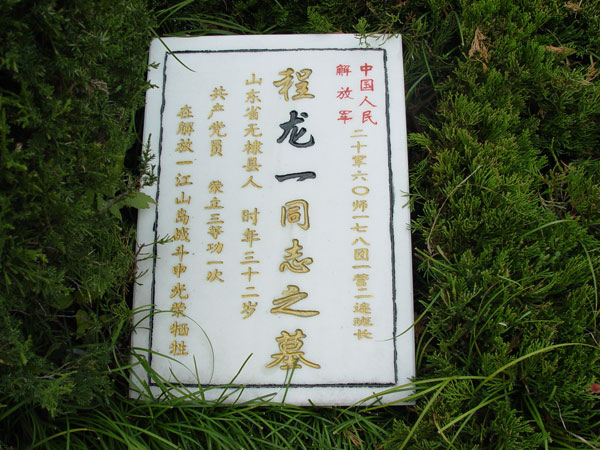 中国人民
解放军
二十军六〇师一七八团一营二连班长
程龙一同志之墓
山东省无棣县人 时年三十二岁
共产党员 荣立三等功一次
在解放一江山岛战斗中光荣牺牲